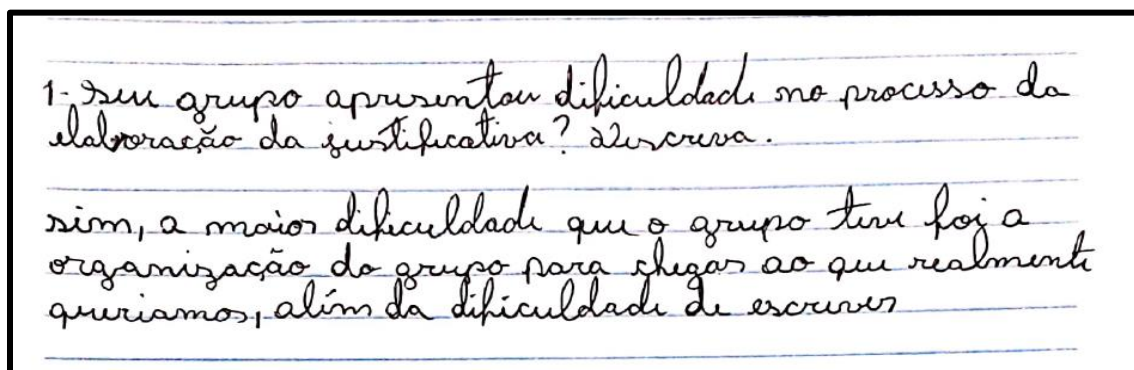 1- Seu grupo apresentou dificuldade no processo da
elaboração da justificativa? Descreva.
sim, a maior dificuldade que o grupo teve foi a
organização do grupo para chegar ao que realmente
queriamos, além da dificuldade de escrever